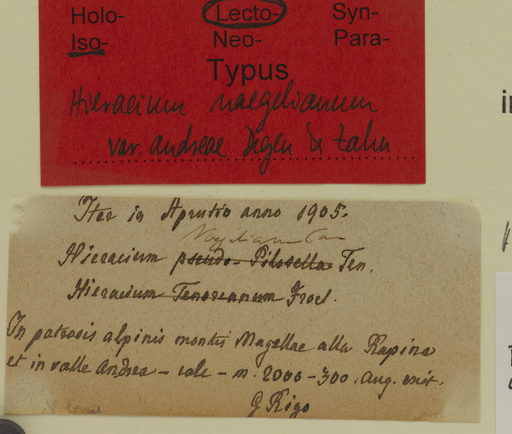 Holo- Lecto- Syn-
Iso- Neo- Para-
Typus
Hieracium naegelianum
var. andreae Degen & Zahn
Iter in Aprutio anno 1905.
Hieracium pseudo-Pilosella Ten.
Hieracium Tenoreanum Froel.
In petrosis alpinis montis Magellae alla Rapina
et in valle Andrea - sole - m. 2000-300. Aug. exit.
G. Rigo